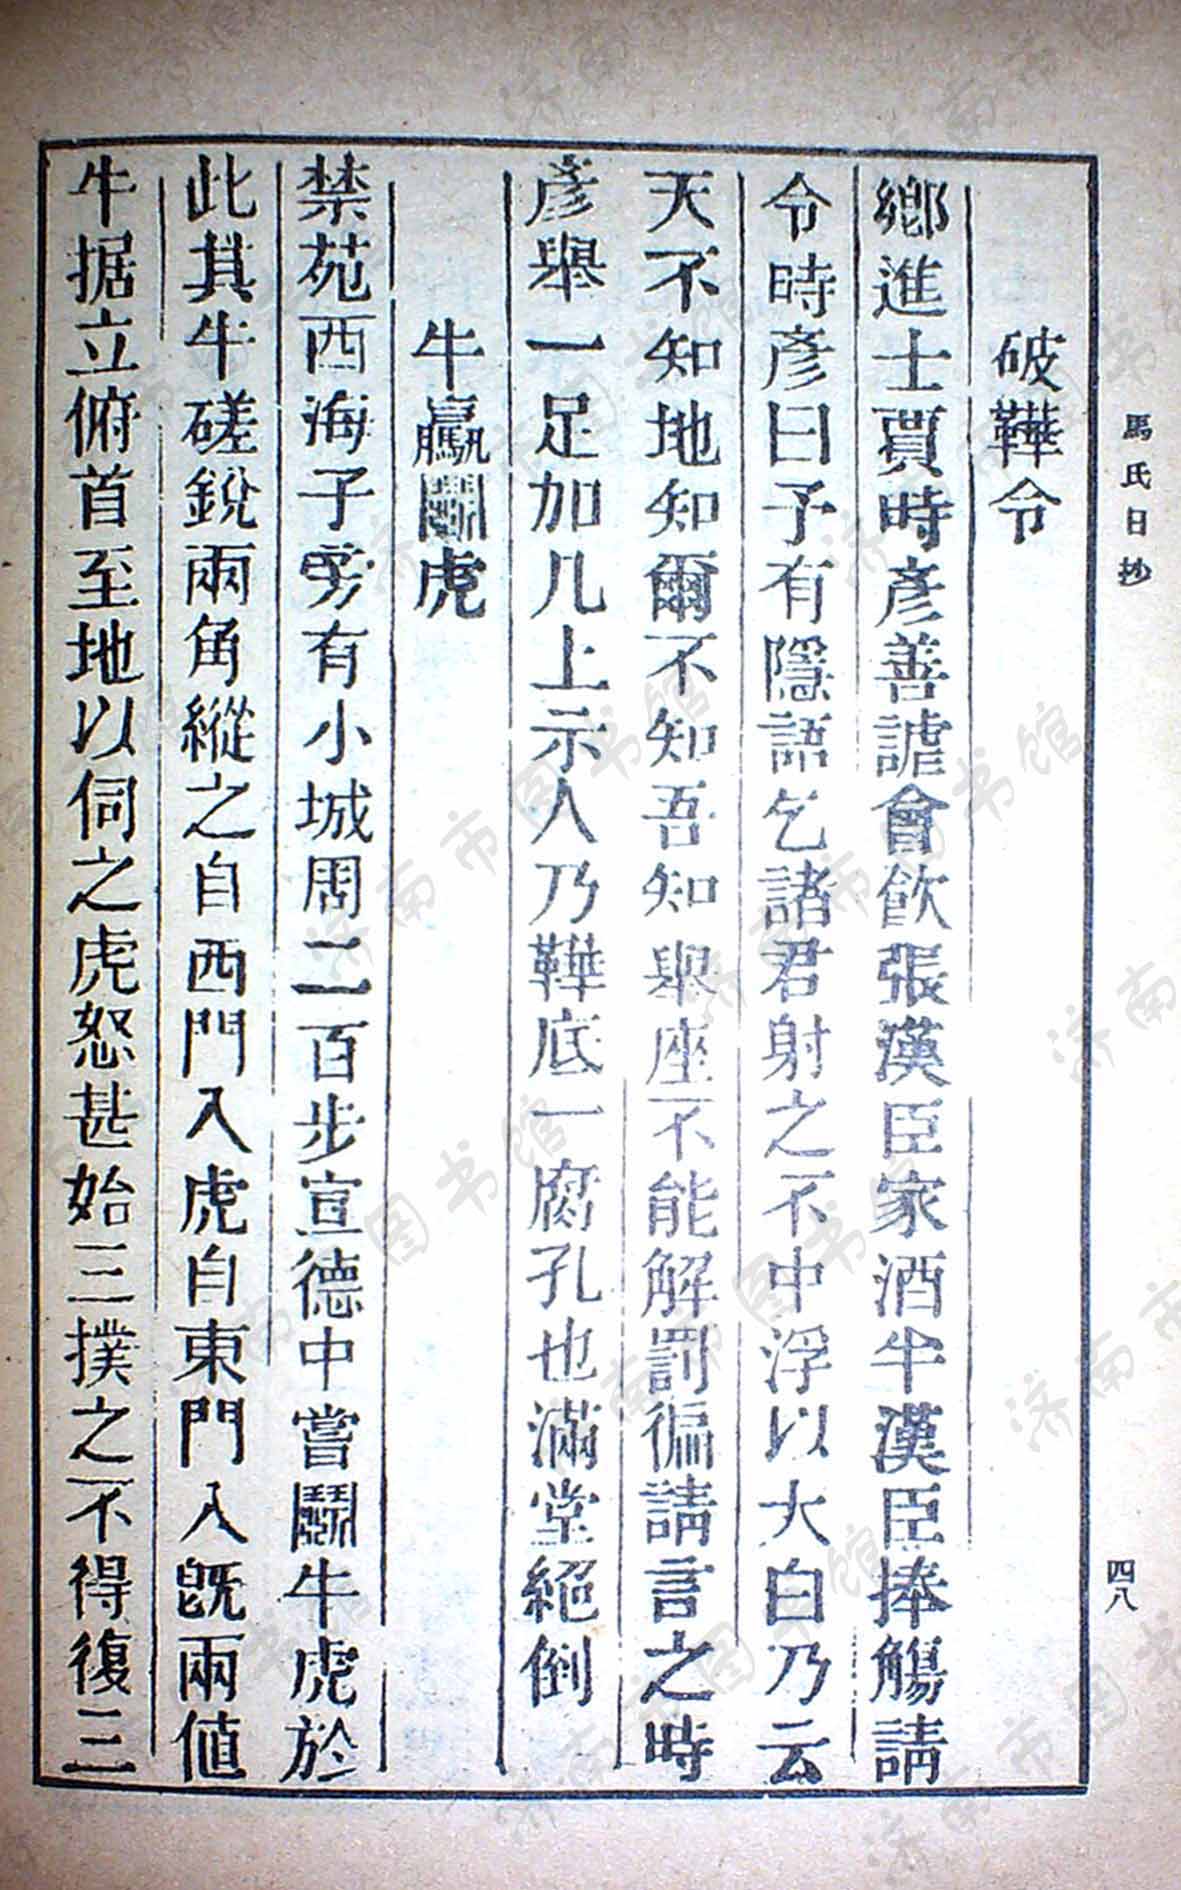 馬氏日抄
四八
破鞾令
鄉進士賈時彥善謔會飲張漢臣家酒半漢臣捧觴請
令時彥曰予有隱語乞諸君射之不中浮以大白乃云
天不知地知爾不知吾知舉座不能解罰徧請言之時
彥舉一足加几上示人乃鞾底一腐孔也滿堂絕倒
牛贏鬭虎
禁苑西海子旁有小城周二百步宣德中嘗鬭牛虎於
此其牛磋銳兩角縱之自西門入虎自東門入旣兩値
牛据立俯首至地以伺之虎怒甚始三撲之不得復三
济南市图书馆